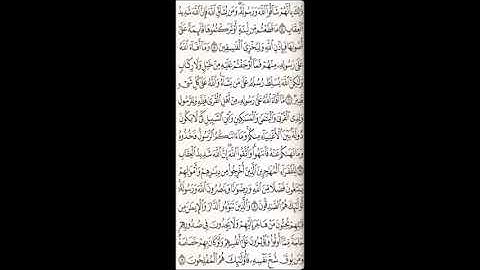 ذَٰلِكَ بِأَنَّهُمْ شَاقُّوا۟ ٱللَّهَ وَرَسُولَهُۥ وَمَن يُشَآقِّ ٱللَّهَ فَإِنَّ ٱللَّهَ شَدِيدُ
ٱلْعِقَابِ ٤ مَا قَطَعْتُم مِّن لِّينَةٍ أَوْ تَرَكْتُمُوهَا قَآئِمَةً عَلَىٰٓ
أُصُولِهَا فَبِإِذْنِ ٱللَّهِ وَلِيُخْزِىَ ٱلْفَٰسِقِينَ ٥ وَمَآ أَفَآءَ ٱللَّهُ
عَلَىٰ رَسُولِهِۦ مِنْهُمْ فَمَآ أَوْجَفْتُمْ عَلَيْهِ مِنْ خَيْلٍ وَلَا رِكَابٍ
وَلَٰكِنَّ ٱللَّهَ يُسَلِّطُ رُسُلَهُۥ عَلَىٰ مَن يَشَآءُ وَٱللَّهُ عَلَىٰ كُلِّ شَىْءٍ
قَدِيرٌ ٦ مَّآ أَفَآءَ ٱللَّهُ عَلَىٰ رَسُولِهِۦ مِنْ أَهْلِ ٱلْقُرَىٰ فَلِلَّهِ وَلِلرَّسُولِ
وَلِذِى ٱلْقُرْبَىٰ وَٱلْيَتَٰمَىٰ وَٱلْمَسَٰكِينِ وَٱبْنِ ٱلسَّبِيلِ كَىْ لَا يَكُونَ
دُولَةًۢ بَيْنَ ٱلْأَغْنِيَآءِ مِنكُمْ وَمَآ ءَاتَىٰكُمُ ٱلرَّسُولُ فَخُذُوهُ
وَمَا نَهَىٰكُمْ عَنْهُ فَٱنتَهُوا۟ وَٱتَّقُوا۟ ٱللَّهَ إِنَّ ٱللَّهَ شَدِيدُ ٱلْعِقَابِ
٧ لِلْفُقَرَآءِ ٱلْمُهَٰجِرِينَ ٱلَّذِينَ أُخْرِجُوا۟ مِن دِيَٰرِهِمْ وَأَمْوَٰلِهِمْ
يَبْتَغُونَ فَضْلًا مِّنَ ٱللَّهِ وَرِضْوَٰنًا وَيَنصُرُونَ ٱللَّهَ وَرَسُولَهُۥٓ
أُو۟لَٰٓئِكَ هُمُ ٱلصَّٰدِقُونَ ٨ وَٱلَّذِينَ تَبَوَّءُو ٱلدَّارَ وَٱلْإِيمَٰنَ مِن
قَبْلِهِمْ يُحِبُّونَ مَنْ هَاجَرَ إِلَيْهِمْ وَلَا يَجِدُونَ فِى صُدُورِهِمْ
حَاجَةً مِّمَّآ أُوتُوا۟ وَيُؤْثِرُونَ عَلَىٰٓ أَنفُسِهِمْ وَلَوْ كَانَ بِهِمْ خَصَاصَةٌ
وَمَن يُوقَ شُحَّ نَفْسِهِۦ فَأُو۟لَٰٓئِكَ هُمُ ٱلْمُفْلِحُونَ ٩